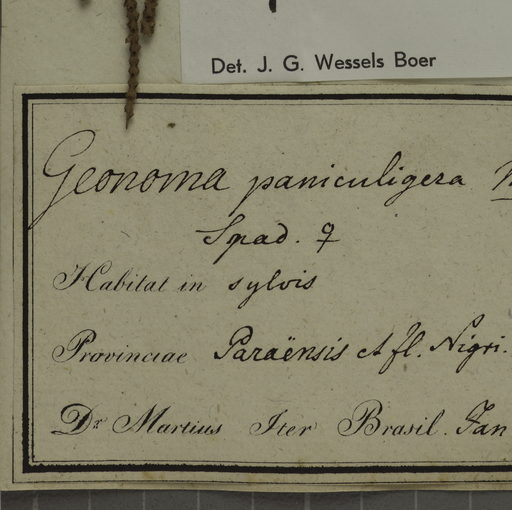 Det. J. G. Wessels Boer
Geonoma paniculigera
Spad. ♀
Habitat in sylvis
Provinciae Paraënsis et fl. Nigri.
Dr Martius Iter Brasil. Jan